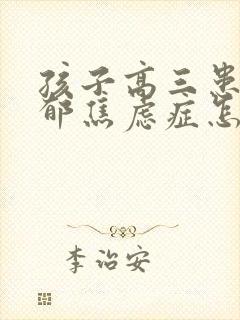 孩子高三患
郁焦虑症怎
李治安